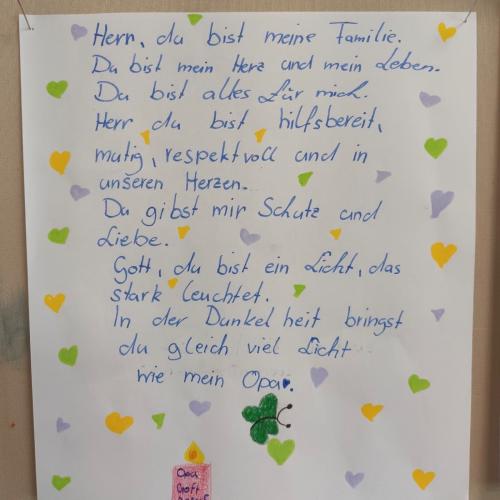 Herr, du bist meine Familie.
Du bist mein Herz und mein Leben.
Du bist alles für mich.
Herr du bist hilfsbereit,
mutig, respektvoll und in
unseren Herzen.
Du gibst mir Schutz und
Liebe.
Gott, du bist ein Licht, das
stark leuchtet.
In der Dunkelheit bringst
du gleich viel Licht
wie mein Opa.